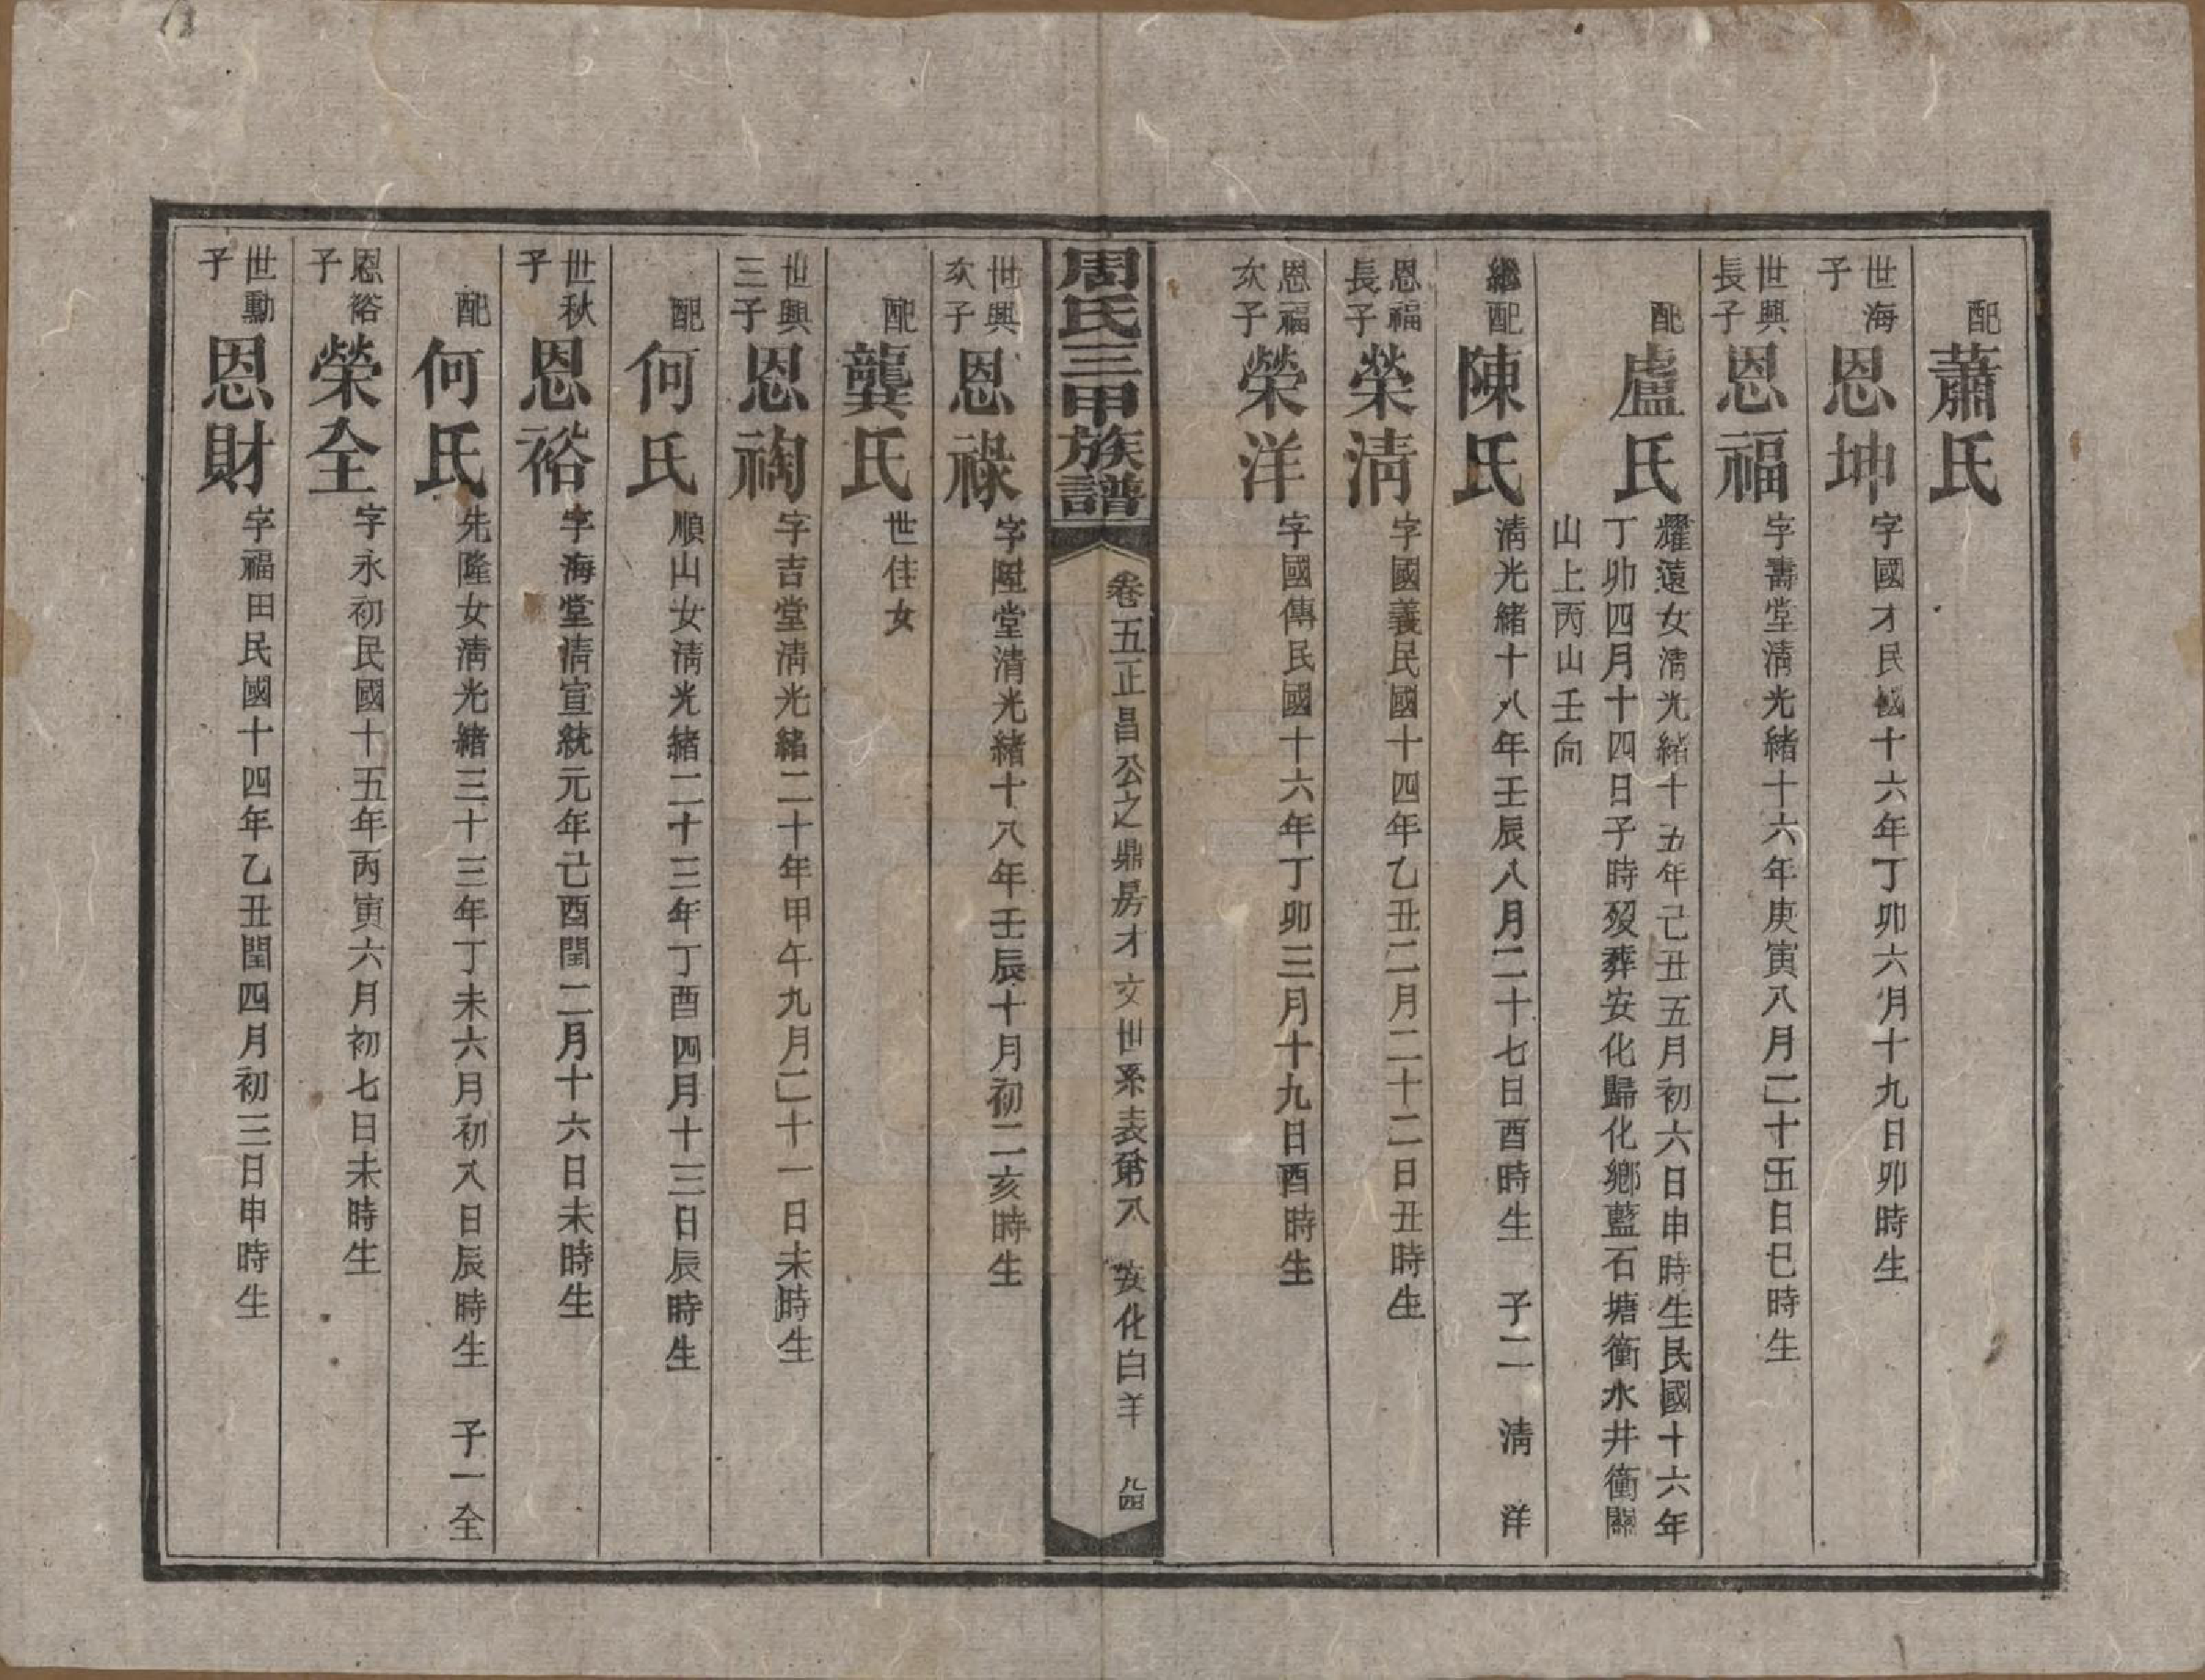 配 蕭氏
世海子 恩坤 字國才民國十六年丁卯六月十九日卯時生
世興長子 恩福 字壽堂清光緒十六年庚寅八月二十五日巳時生
配 盧氏 耀遠女清光緒十五年己丑五月初六日申時生民國十六年
丁卯四月十四日子時歿葬安化歸化鄉藍石塘衝水井衝關
山上丙山壬向
繼配 陳氏 清光緒十八年壬辰八月二十七日酉時生 子二 清 洋
恩福長子 榮清 字國義民國十四年乙丑二月二十二日丑時生
恩福次子 榮洋 字國傳民國十六年丁卯三月十九日酉時生
周氏三甲族譜 卷五正昌公之鼎房才文世系表第八 安化白羊 八四
世興次子 恩祿 字陞堂清光緒十八年壬辰十月初二亥時生
配 龔氏 世佳女
世興三子 恩祹 字吉堂清光緒二十年甲午九月二十一日未時生
配 何氏 順山女清光緒二十三年丁酉四月十三日辰時生
世秋子 恩裕 字海堂清宣統元年己酉閏二月十六日未時生
配 何氏 先隆女清光緒三十三年丁未六月初八日辰時生 子一全
恩裕子 榮全 字永初民國十五年丙寅六月初七日未時生
世勳子 恩財 字福田民國十四年乙丑閏四月初三日申時生